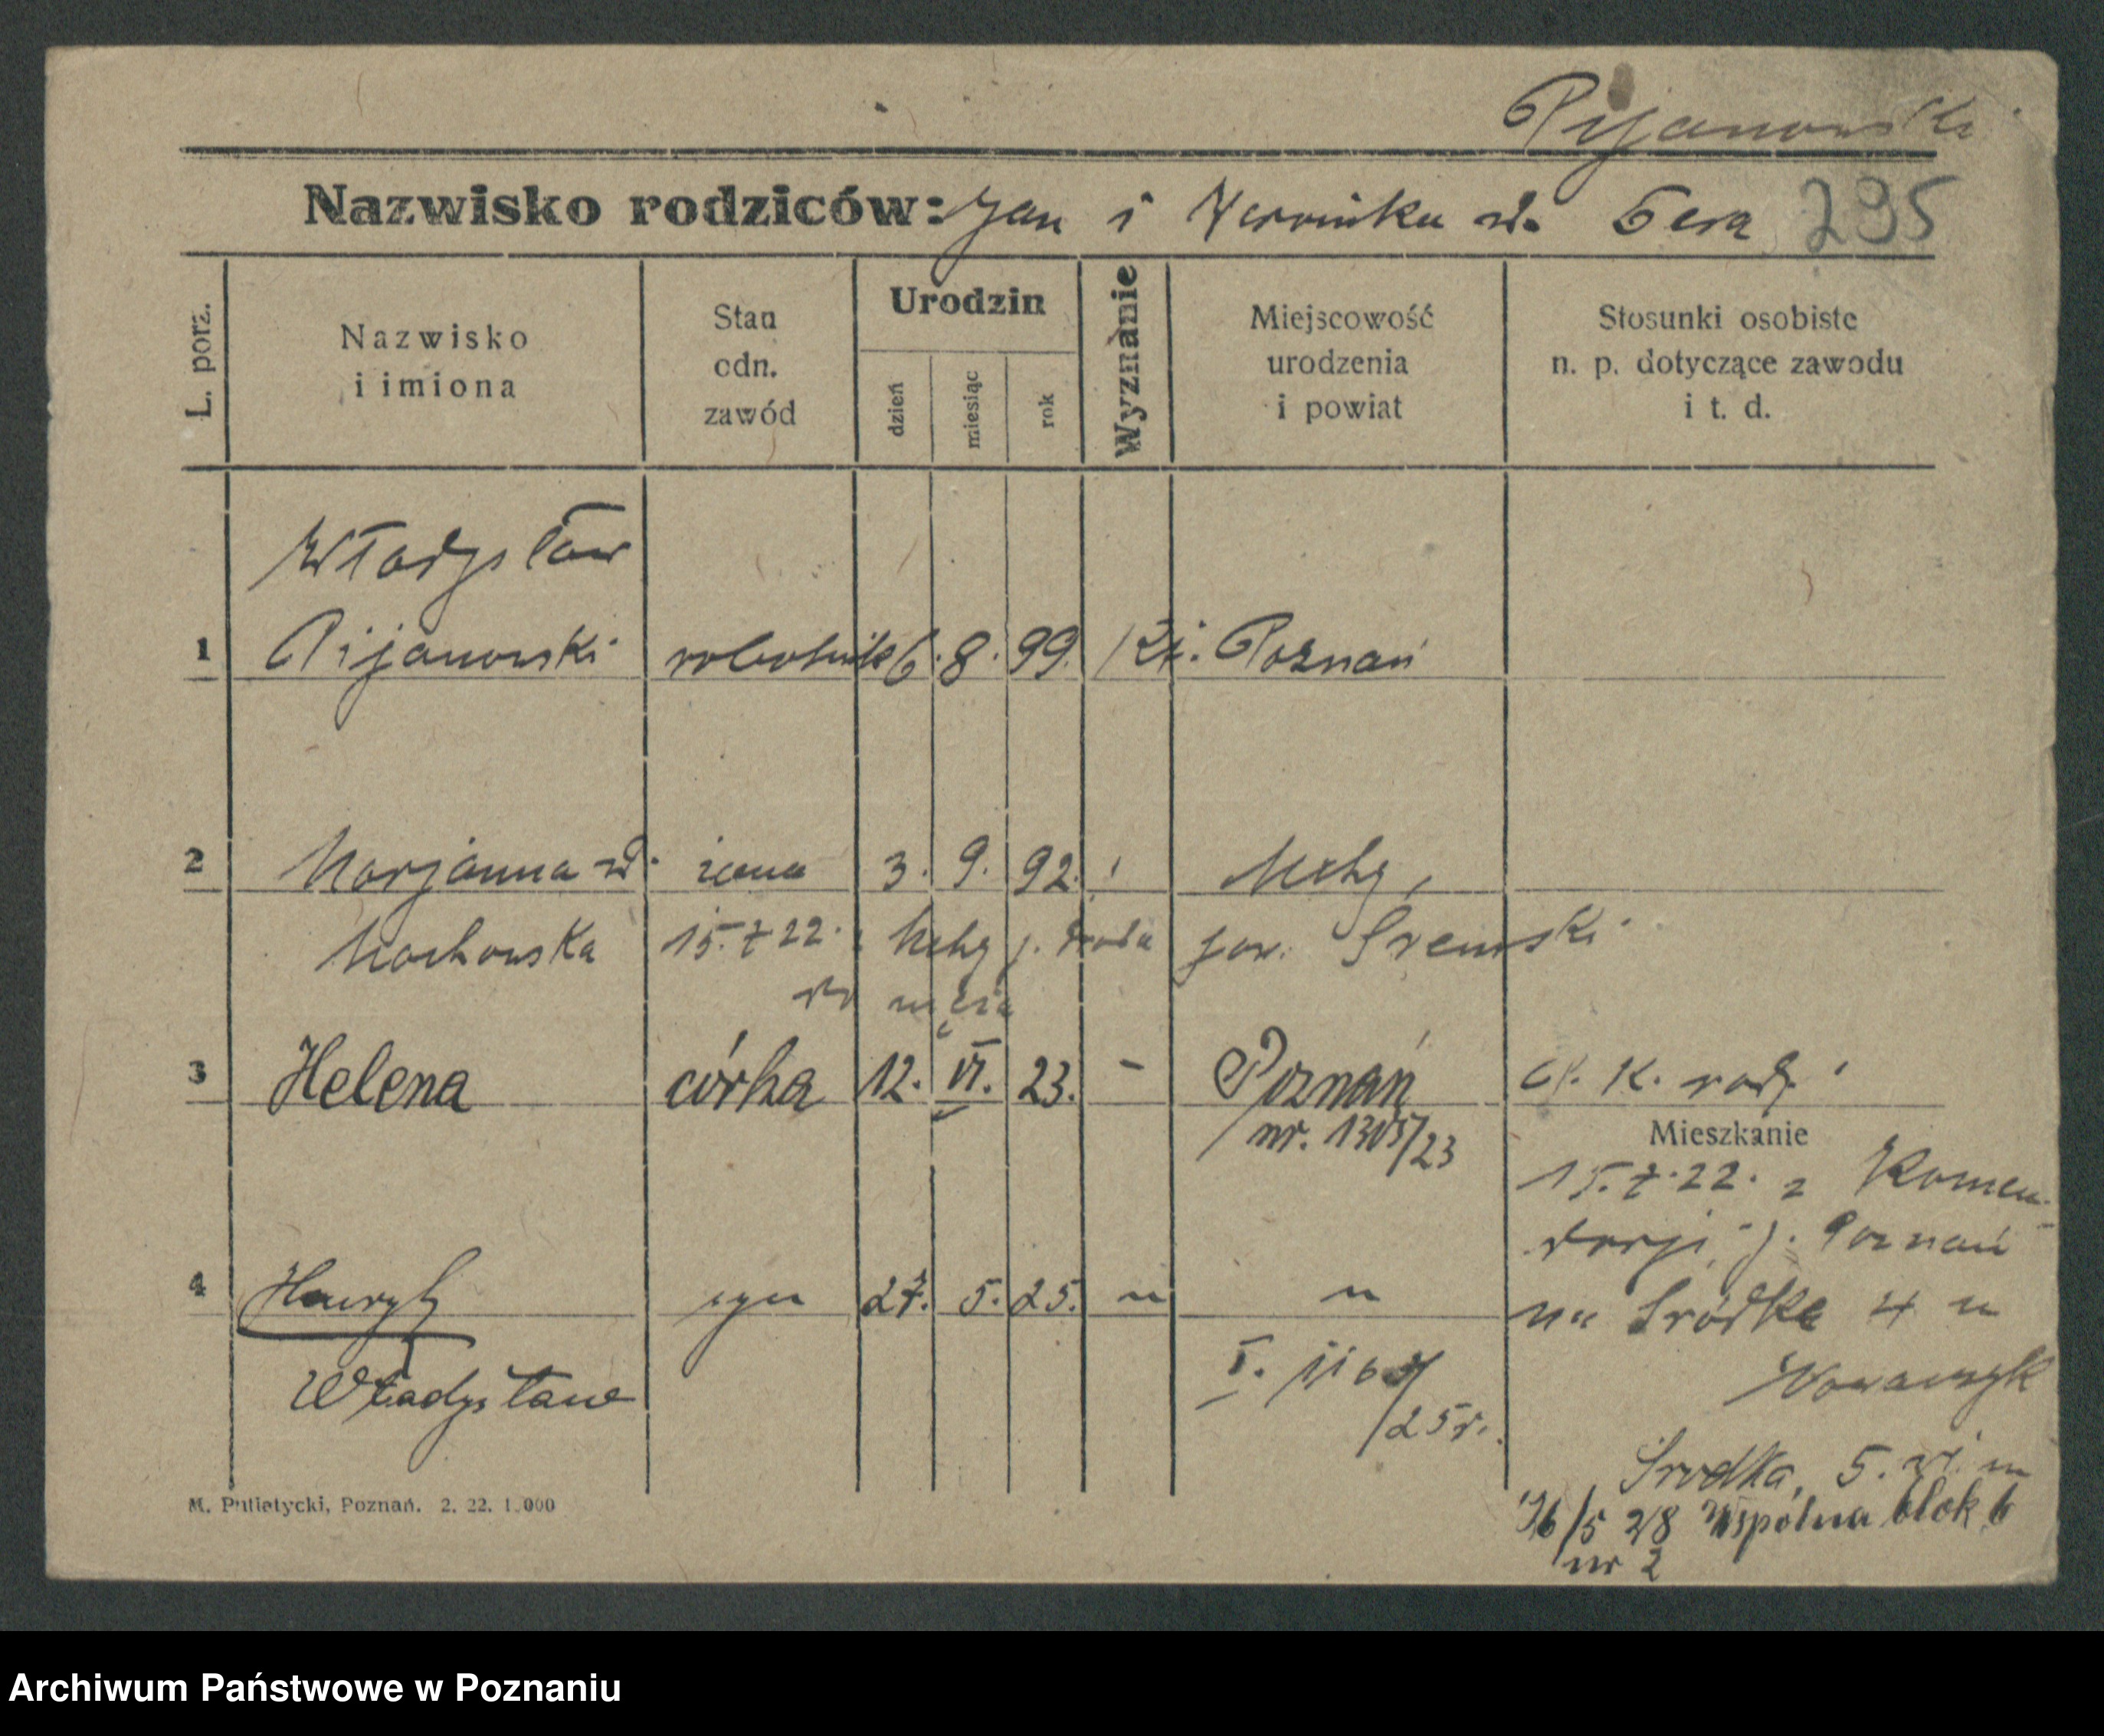 Pijanowski
Nazwisko rodziców: Jan i Weronika z d. Gera 295
L. porz.
Nazwisko
i imiona
Stan
odn.
zawód
Urodzin
dzień
miesiąc
rok
Wyznanie
Miejscowość
urodzenia
i powiat
Stosunki osobiste
n. p. dotyczące zawodu
i t. d.
Władysław
1 Pijanowski robotnik 6. 8. 99. kt. Poznań
2 Marjanna zd. żona 3. 9. 92. Mchy,
Mochowska 15.7 22. z Mchy p. Środa pow. Śremski
do męża
3 Helena córka 12. VI. 23. - Poznań K. rodz.
nr. 1305/23
Mieszkanie
15.7.22. z Komen-
dorji p. Poznań
4 Henryk syn 27. 5. 25. " " na Śródka 4 u
Władysław I. /25r. Nowaczyk
Śrudka, 5.
16/5 28 Wspólna blok 6
nr 2
M. Putiatycki, Poznań. 2. 22. 1.000
Archiwum Państwowe w Poznaniu